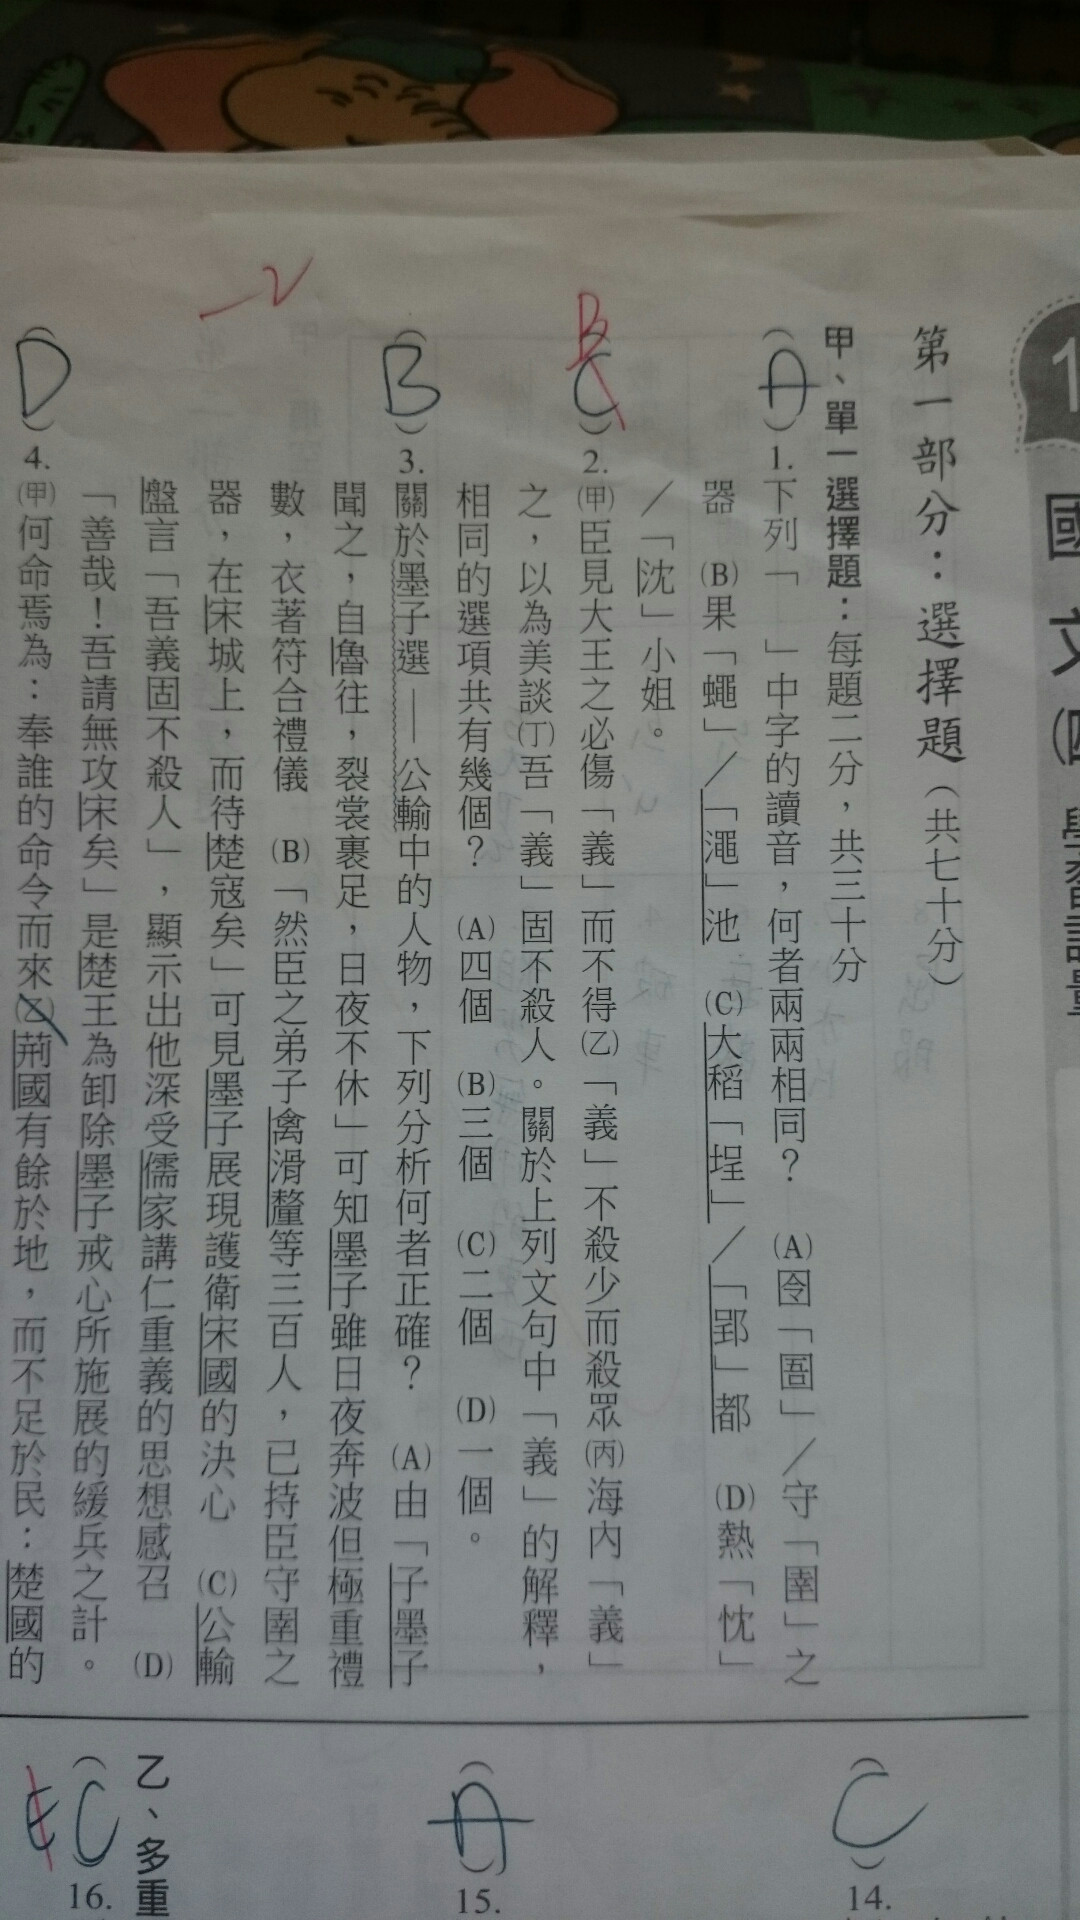 第一部分：選擇題（共七十分）
甲、單一選擇題：每題二分，共三十分
（A）1.下列「　」中字的讀音，何者兩兩相同？　(A)囹「圄」／守「圉」之
器　(B)果「蠅」／「澠」池　(C)大稻「埕」／「郢」都　(D)熱「忱」
／「沈」小姐。
B
（C）2.㈙臣見大王之必傷「義」而不得㈚「義」不殺少而殺眾㈛海內「義」
之，以為美談㈜吾「義」固不殺人。關於上列文句中「義」的解釋，
相同的選項共有幾個？　(A)四個　(B)三個　(C)二個　(D)一個。
（B）3.關於墨子選——公輸中的人物，下列分析何者正確？　(A)由「子墨子
聞之，自魯往，裂裳裹足，日夜不休」可知墨子雖日夜奔波但極重禮
數，衣著符合禮儀　(B)「然臣之弟子禽滑釐等三百人，已持臣守圉之
器，在宋城上，而待楚寇矣」可見墨子展現護衛宋國的決心　(C)公輸
盤言「吾義固不殺人」，顯示出他深受儒家講仁重義的思想感召　(D)
「善哉！吾請無攻宋矣」是楚王為卸除墨子戒心所施展的緩兵之計。
-2
（D）4.㈙何命焉為：奉誰的命令而來㈚荊國有餘於地，而不足於民：楚國的
（C）14.
（A）15.
乙、多重
（C）16.